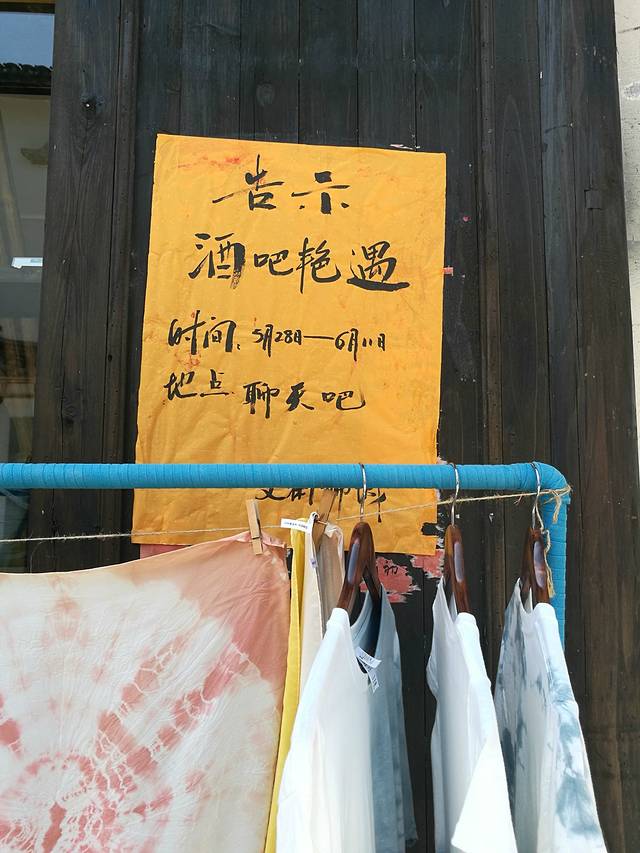 告示
酒吧艳遇
时间：5月28日——6月11日
地点 聊天吧